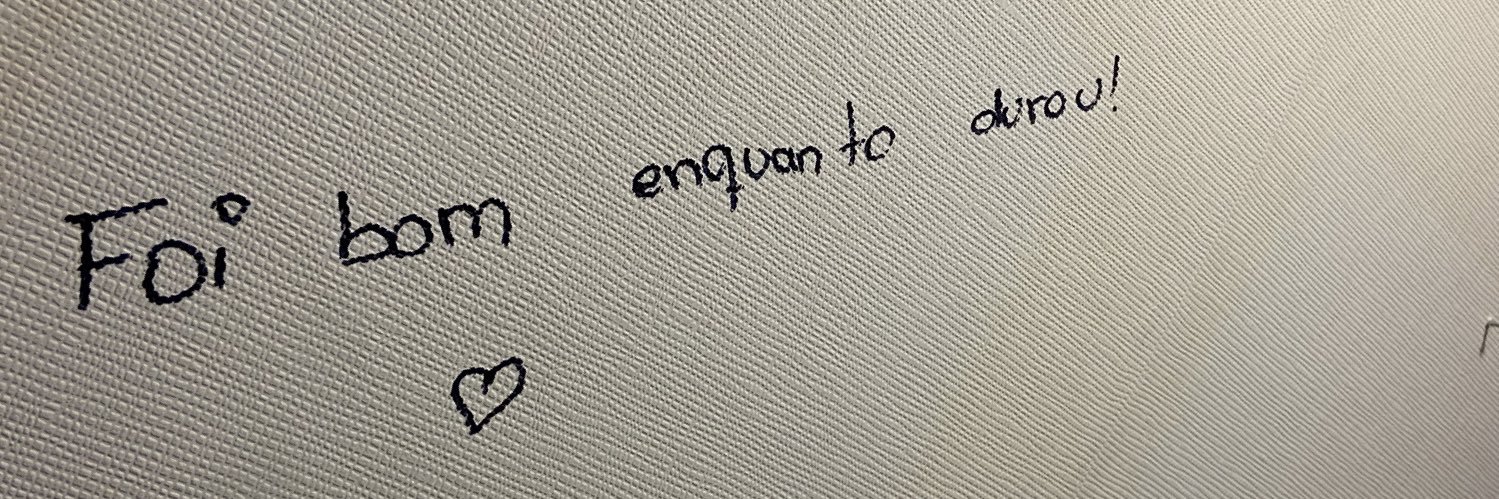 Foi bom enquanto durou!